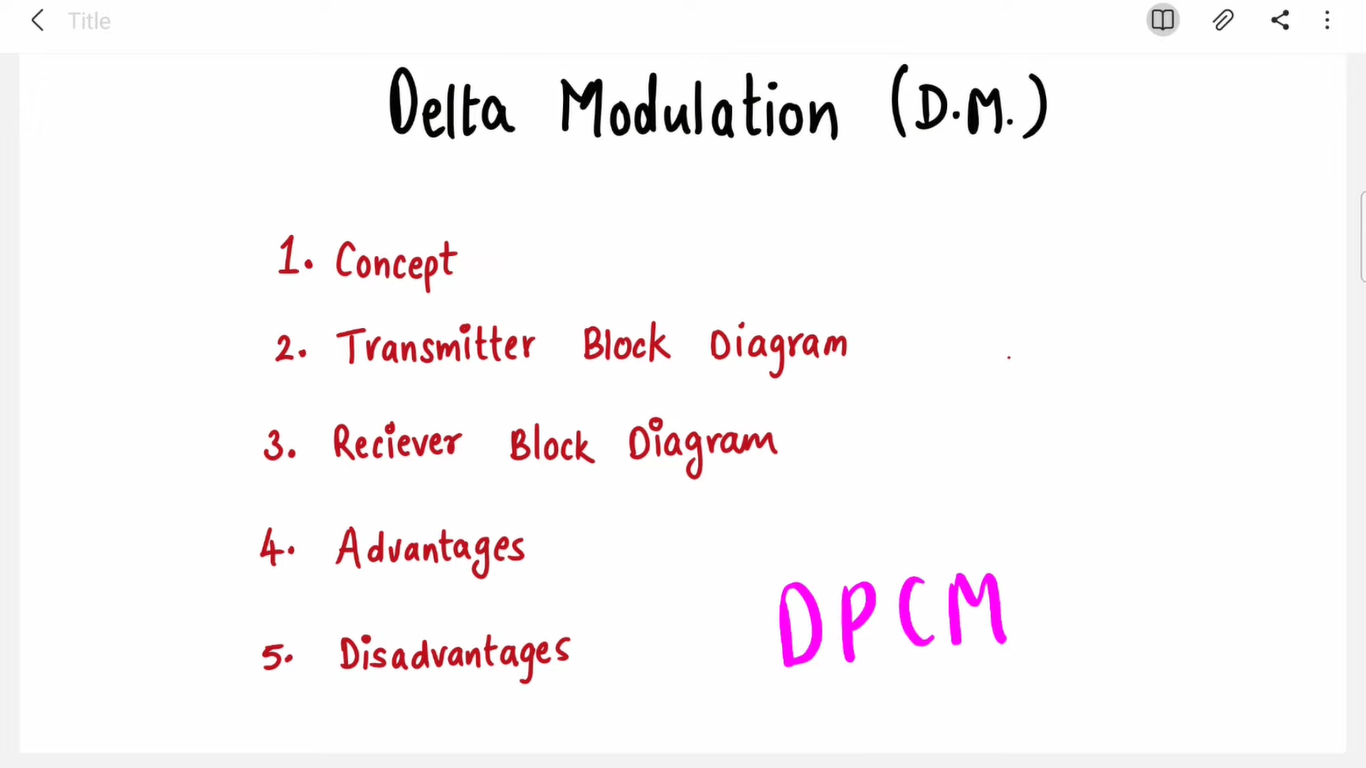 Title
Delta Modulation (D.M.)
1. Concept
2. Transmitter Block Diagram
3. Reciever Block Diagram
4. Advantages
DPCM
5. Disadvantages